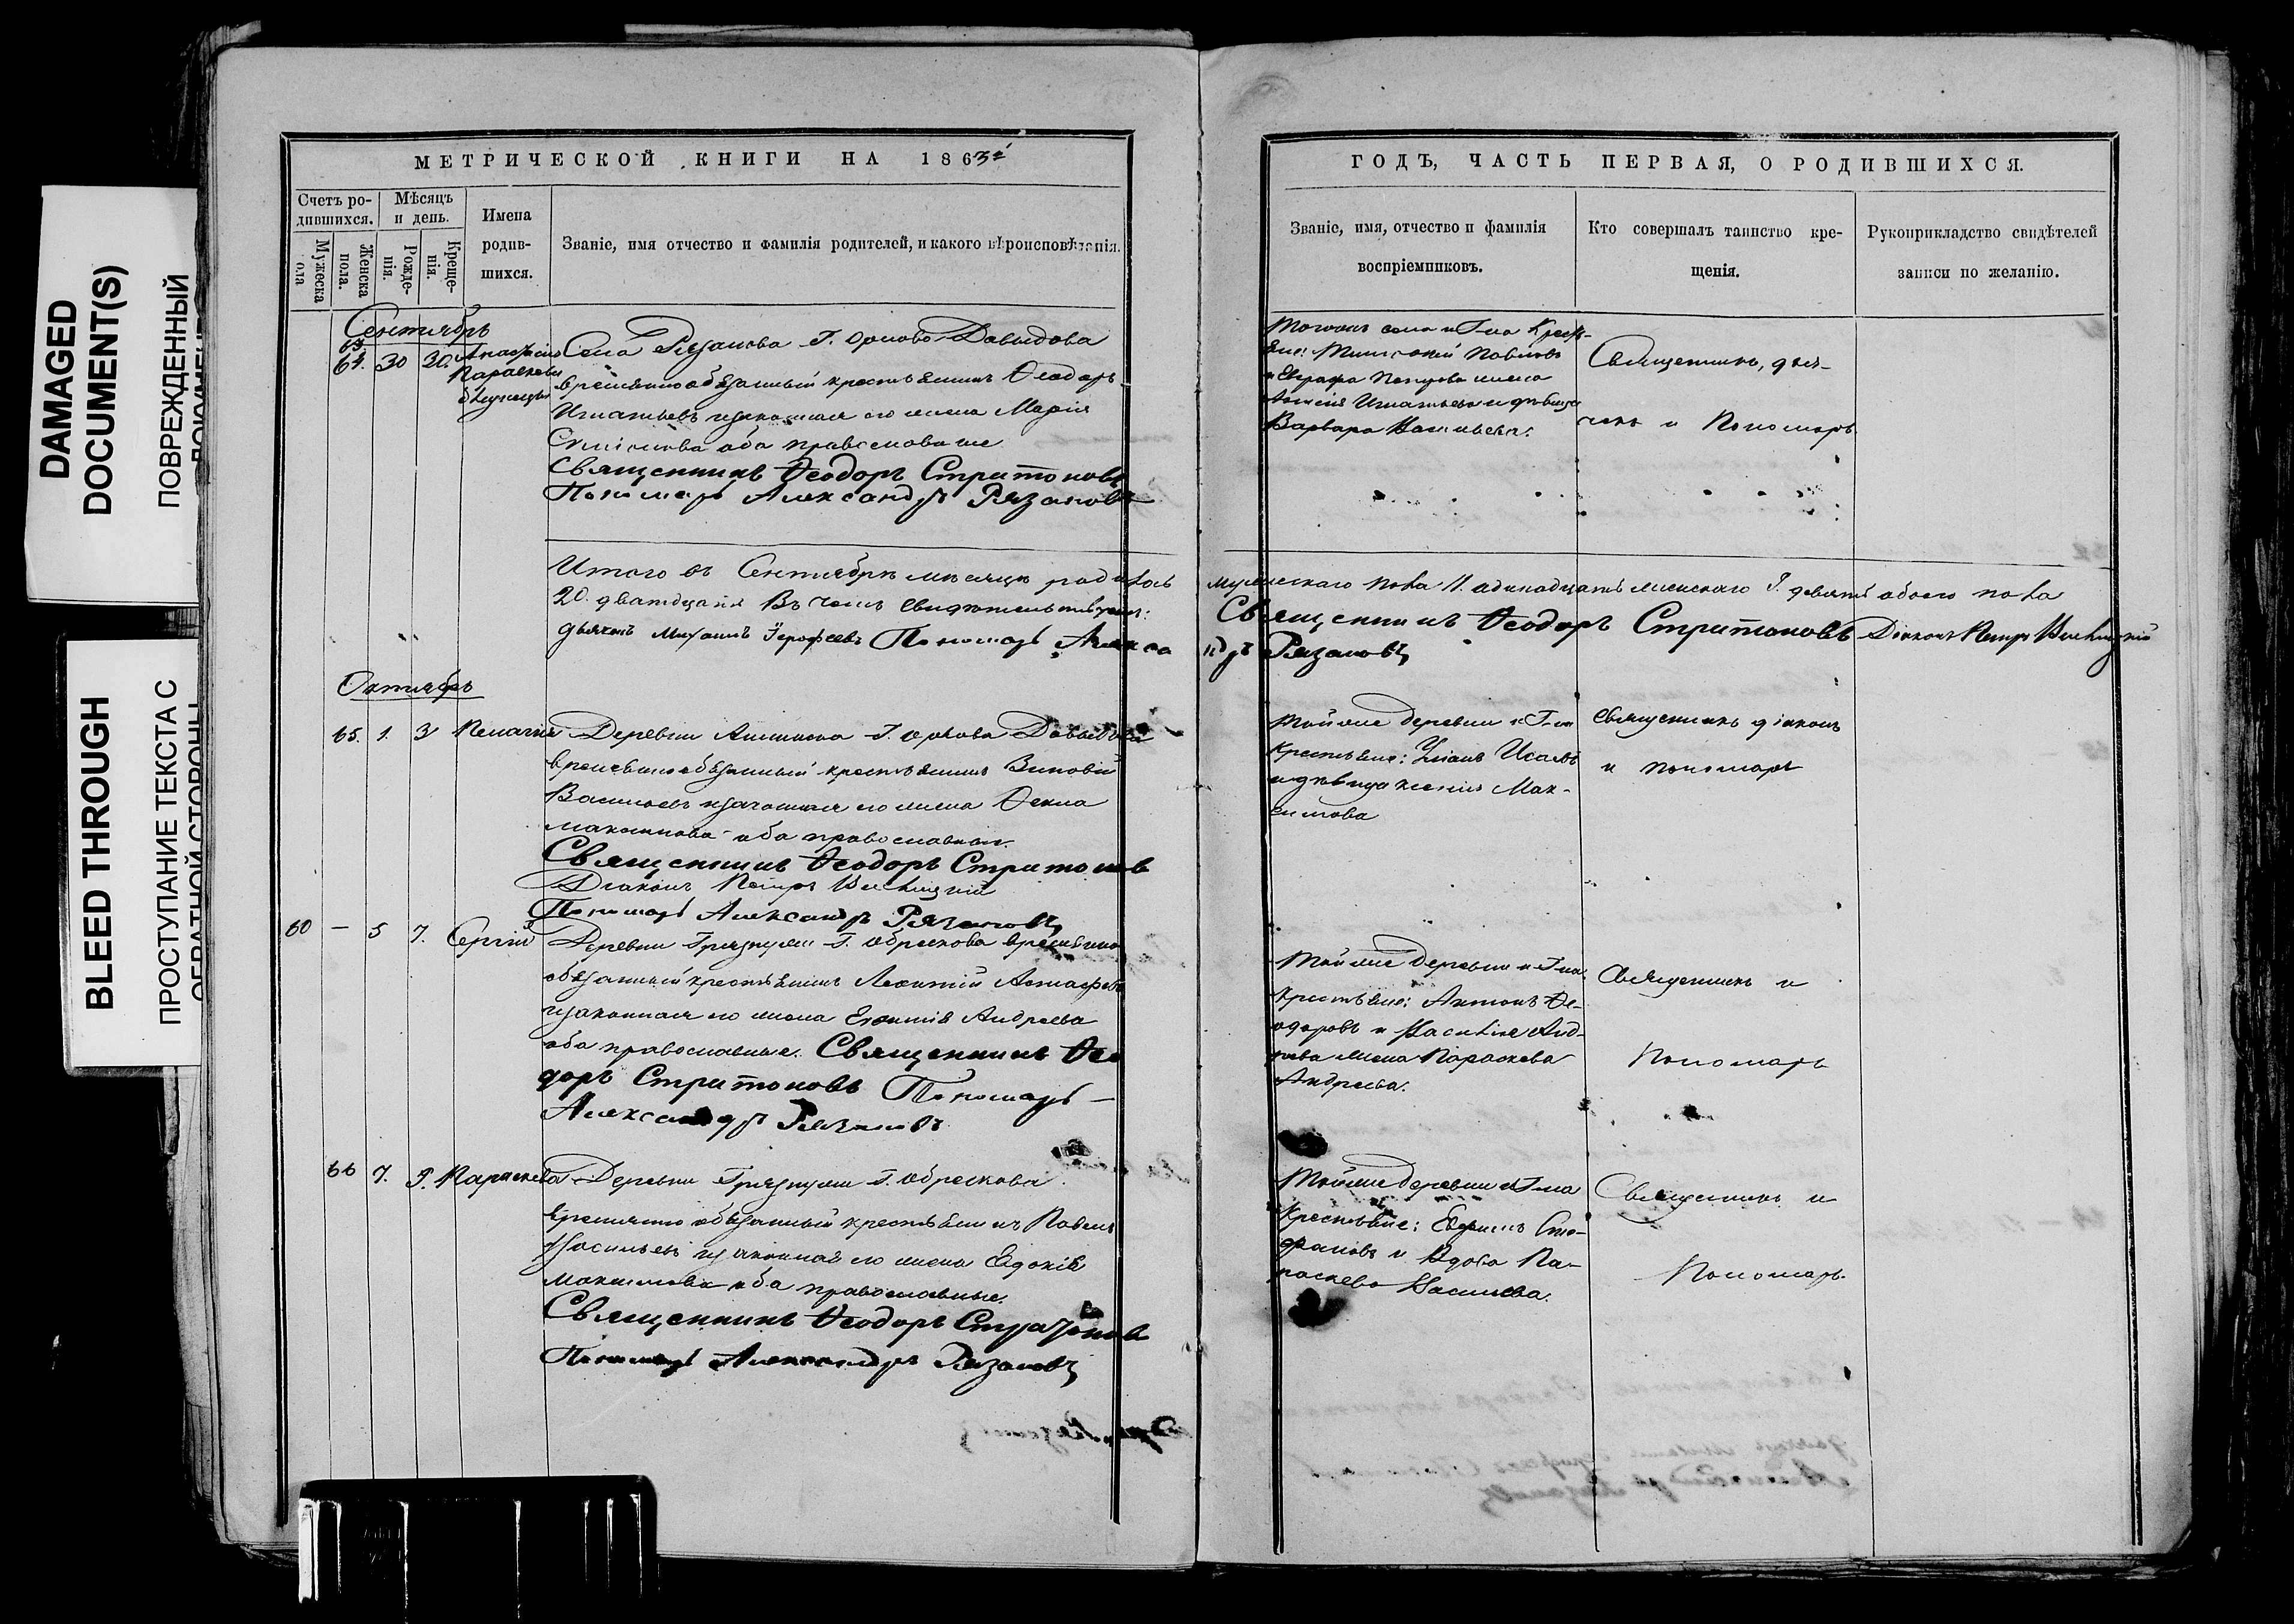 DAMAGED
DOCUMENT(S)
ПОВРЕЖДЕННЫЙ
BLEED THROUGH
ПРОСТУПАНИЕ ТЕКСТА С
ОБРАТНОЙ СТОРОНЫ
МЕТРИЧЕСКОЙ КНИГИ НА 1863й
Счетъ ро-
дившихся.
Мѣсяцъ
и день.
Имена
родив-
шихся.
Званіе, имя отчество и фамилія родителей, и какого вѣроисповѣданія.
Мужеска
пола
Женска
пола.
Рожде-
нія.
Креще-
нія.
Сентябрь
63
64. 30 30. Анастасія Села Рязанова Г. Орлова Давыдова
Параскева
близнецы временнообязанный крестьянинъ Ѳеодоръ
Игнатьевъ и законная его жена Марія
оба православные
Священникъ Ѳеодоръ Стратоновъ
Пономарь Александръ Рязановъ
Итого въ Сентябрѣ мѣсяцѣ родилось
20. дватцать Въ чемъ свидѣтельствуемъ:
дьяконъ Михаилъ Ерофеевъ Пономарь Алекса
Октябрь
65. 1. 3 Пелагія Деревни Г. Орлова Давыдова
временнообязанный крестьянинъ Зиновій
Васильевъ и законная его жена Ѳекла
Максимова оба православные.
Священникъ Ѳеодоръ Стратоновъ
Діаконъ Петръ
Пономарь Александръ Рязановъ
60 — 5 7. Сергій Деревни Грязнуши Г. Обрескова временно
обязанный крестьянинъ Леонтій Астафьевъ
и законная его жена Евфимія Андреева
оба православные. Священникъ Ѳео
доръ Стратоновъ Пономарь —
Александръ Рязановъ
66 7. 9. Параскева Деревни Грязнуши Г. Обрескова
временно обязанный крестьянинъ Павелъ
Васильевъ и законная его жена Евдокія
Максимова оба православные.
Священникъ Ѳеодоръ Стратоновъ
Пономарь Александръ Рязановъ
ГОДЪ, ЧАСТЬ ПЕРВАЯ, О РОДИВШИХСЯ.
Званіе, имя, отчество и фамилія
воспріемниковъ.
Кто совершалъ таинство кре-
щенія.
Рукоприкладство свидѣтелей
записи по желанію.
тогожъ села и Г-на Крестья-
не: Павловъ
жена
Игнатьева и дѣвица
Варвара Васильева.
Священникъ, дья-
чекъ и Пономарь
мужескаго пола 11. одинадцать женскаго 9. девять обоего пола
Священникъ Ѳеодоръ Стратоновъ Діаконъ Петръ
ндръ Рязановъ
тойже деревни и Г-на
крестьяне: Исаевъ
и дѣвица Ксенія Мак-
симова
священникъ діаконъ
и пономарь
тойже деревни и Г-на
крестьяне: Антонъ Ѳе-
одоровъ и
жена Параскева
Андреева.
Священникъ и
Пономарь
тойже деревни и Г-на
Крестьяне: Сте-
фановъ и Вдова Па-
раскева Васильева.
Священникъ и
Пономарь